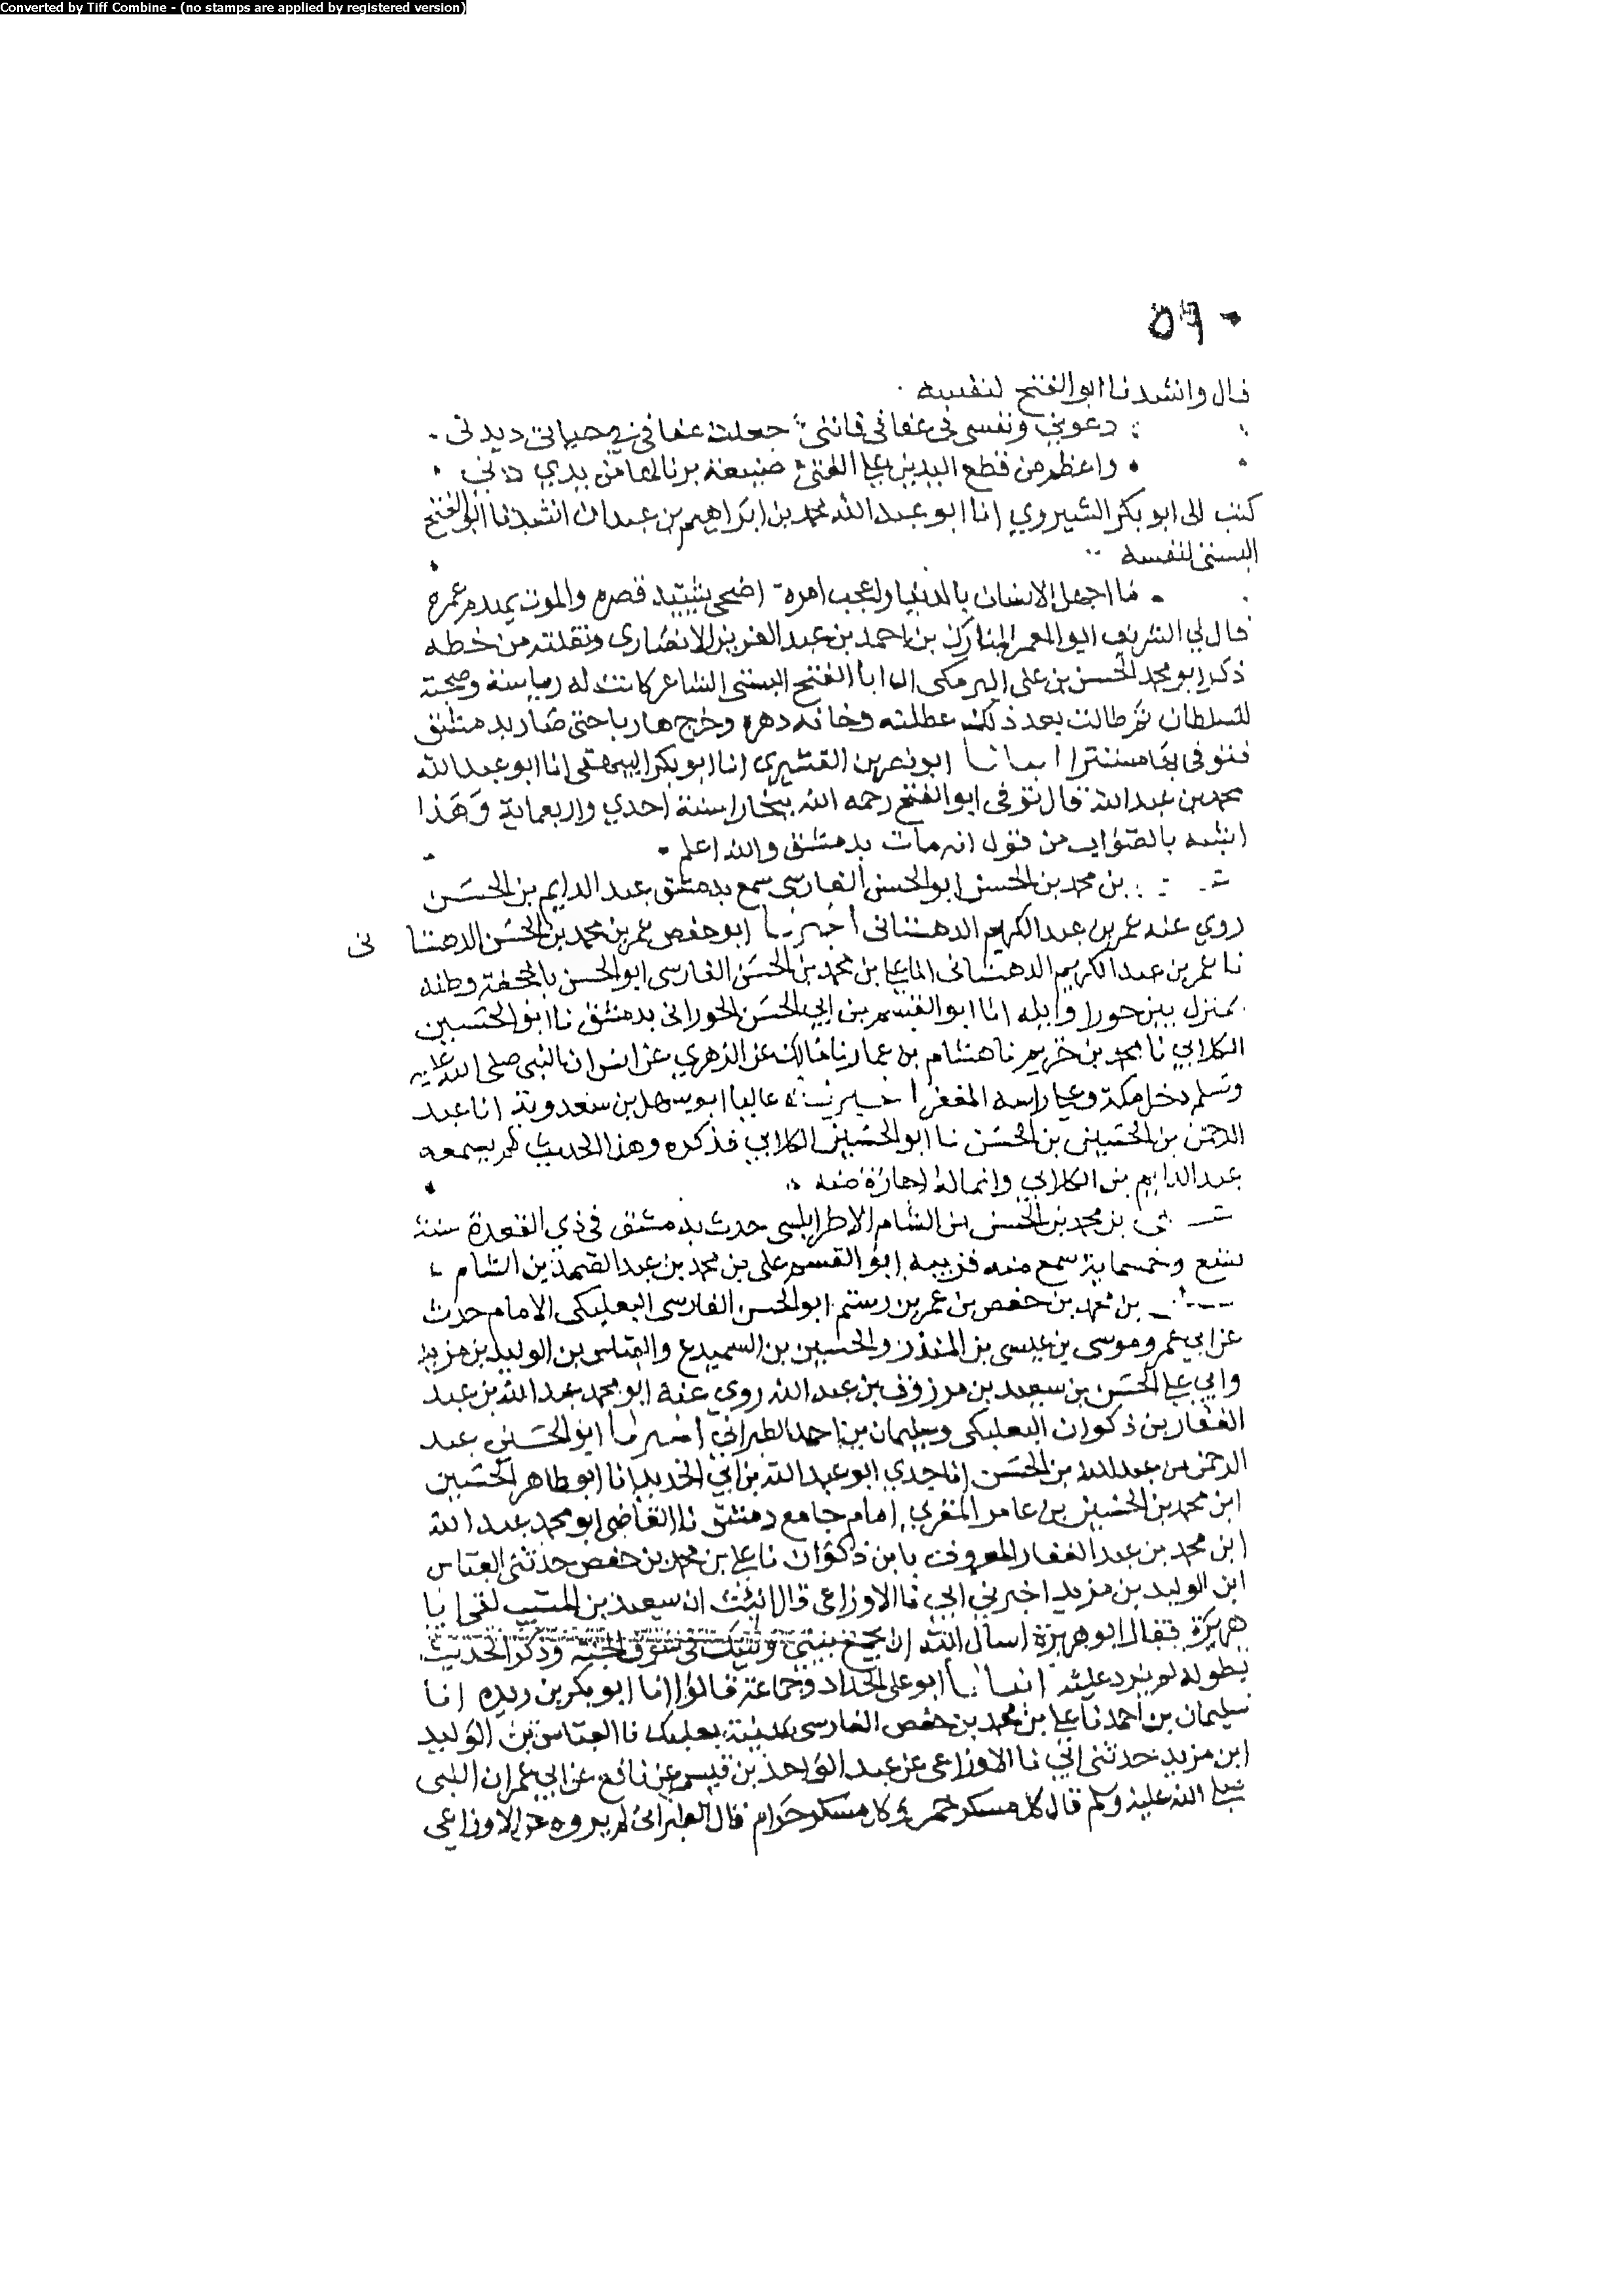 Converted by Tiff Combine - (no stamps are applied by registered version)
٥٩٠
قال وانشدنا ابو الفتح لنفسه
دعوني ونفسي في عفافي فانني جعلت عفافي في حياتي ديدني
واعظم من قطع اليدين على الفتى صنيعة بر نالها من يدي دني
كتب الى ابو بكر الشيروي انا ابو عبد الله محمد بن ابراهيم بن عبدان انشدنا ابو الفتح
البستي لنفسه
ما اجهل الانسان بالدنيا واعجب امره اضحى يشيد قصره والموت يهدم عمره
قال لي الشريف ابو المعمر المبارك بن احمد بن عبد العزيز الانصاري ونقلته من خطه
ذكر ابو محمد الحسن بن علي البرمكي ان ابا الفتح البستي الشاعر كانت له رياسة وصحبة
للسلطان ثم طالت بعد ذلك عطلته وخانه دهره وخرج هاربا حتى صار بدمشق
فتوفي بها مستترا انبانا ابو نصر بن القشيري انا ابو بكر البيهقي انا ابو عبد الله
محمد بن عبد الله قال توفي ابو الفتح رحمه الله ببخارا سنة احدي واربعماية وهذا
اشبه بالصواب من قول انه مات بدمشق والله اعلم
بن محمد بن الحسن ابو الحسن الفارسي سمع بدمشق عبد الدايم بن الحسن
روي عنه عمر بن عبد الكريم الدهستاني اخبرنا ابو حفص عمر بن محمد بن الحسن الدهستا ني
نا عمر بن عبد الكريم الدهستاني انا علي بن محمد بن الحسن الفارسي ابو الحسن بالجحفة وطنه
بمنزل بين حورا وايله انا ابو القسم بن ابي الحسن الحوراني بدمشق نا ابو الحسين
الكلابي نا محمد بن خريم نا هشام بن عمار نا مالك عن الزهري عن انس ان النبي صلى الله عليه
وسلم دخل مكة وعلى راسه المغفر اخبرناه عاليا ابو سهل بن سعدويه انا عبد
الرحمن بن الحسين بن الحسن نا ابو الحسين الكلابي فذكره وهذا الحديث لم يسمعه
عبد الدايم من الكلابي وانما له اجازة منه
بن محمد بن الحسن ابن الشام الاطرابلسي حدث بدمشق في ذي القعدة سنة
تسع وخمسماية سمع منه قريبه ابو القسم علي بن محمد بن عبد الصمد بن الشام
بن محمد بن حفص بن عمر بن رستم ابو الحسن الفارسي البعلبكي الامام حدث
عن ابي عمرو موسى بن عيسى بن المنذر والحسين بن السميدع والعباس بن الوليد بن مزيد
وابي علي الحسن بن سعيد بن مرزوق بن عبد الله روي عنه ابو محمد عبد الله بن عبد
الغفار بن ذكوان البعلبكي وسليمان بن احمد الطبراني اخبرنا ابو الحسين عبد
الرحمن بن عبد الله بن الحسن انا جدي ابو عبد الله بن ابي الحديد انا ابو طاهر الحسين
ابن محمد بن الحسين بن عامر المقري امام جامع دمشق نا القاضي ابو محمد عبد الله
ابن محمد بن عبد الغفار المعروف بابن ذكوان نا علي بن محمد بن حفص حدثني العباس
ابن الوليد بن مزيد اخبرني ابي نا الاوزاعي قال انبئت ان سعيد بن المسيب لقي ابا
هريرة فقال ابو هريرة اسال الله ان يجمع بيني وبينك في سوق الجنة وذكر الحديث
بطوله لم يزد عليه انبانا ابو علي الحداد وجماعة قالوا انا ابو بكر بن ريده انا
سليمان بن احمد نا علي بن محمد بن حفص الفارسي بمدينة بعلبك نا العباس بن الوليد
ابن مزيد حدثني ابي نا الاوزاعي عن عبد الواحد بن قيس عن نافع عن ابن عمر ان النبي
صلى الله عليه وسلم قال كل مسكر خمر وكل مسكر حرام قال الطبراني لم يروه عن الاوزاعي